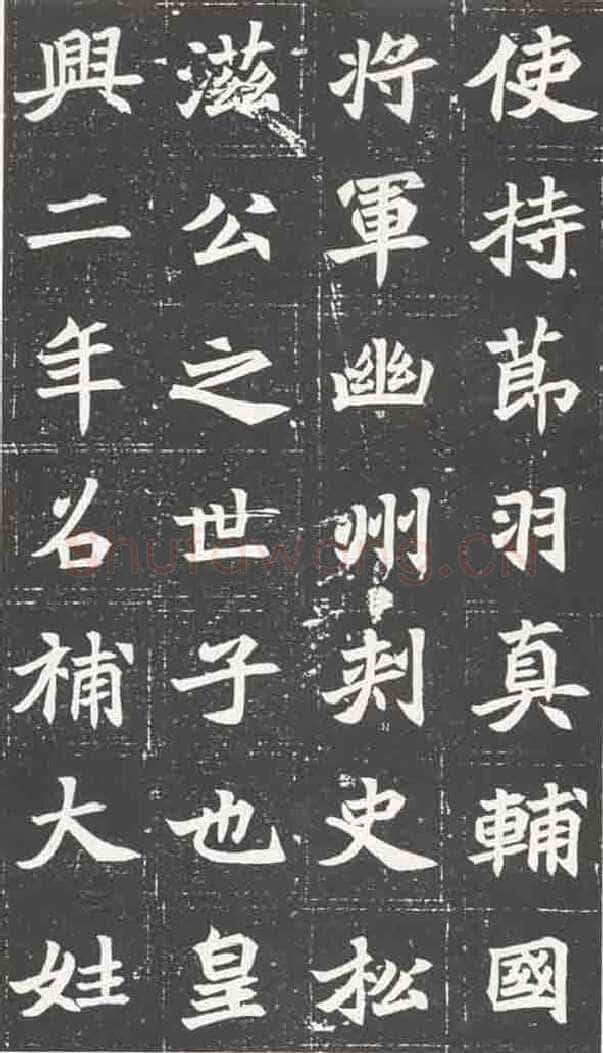 使持莭羽真輔國
将軍幽州刾史松
滋公之世子也皇
興二年召補大姓
shufawang.CN